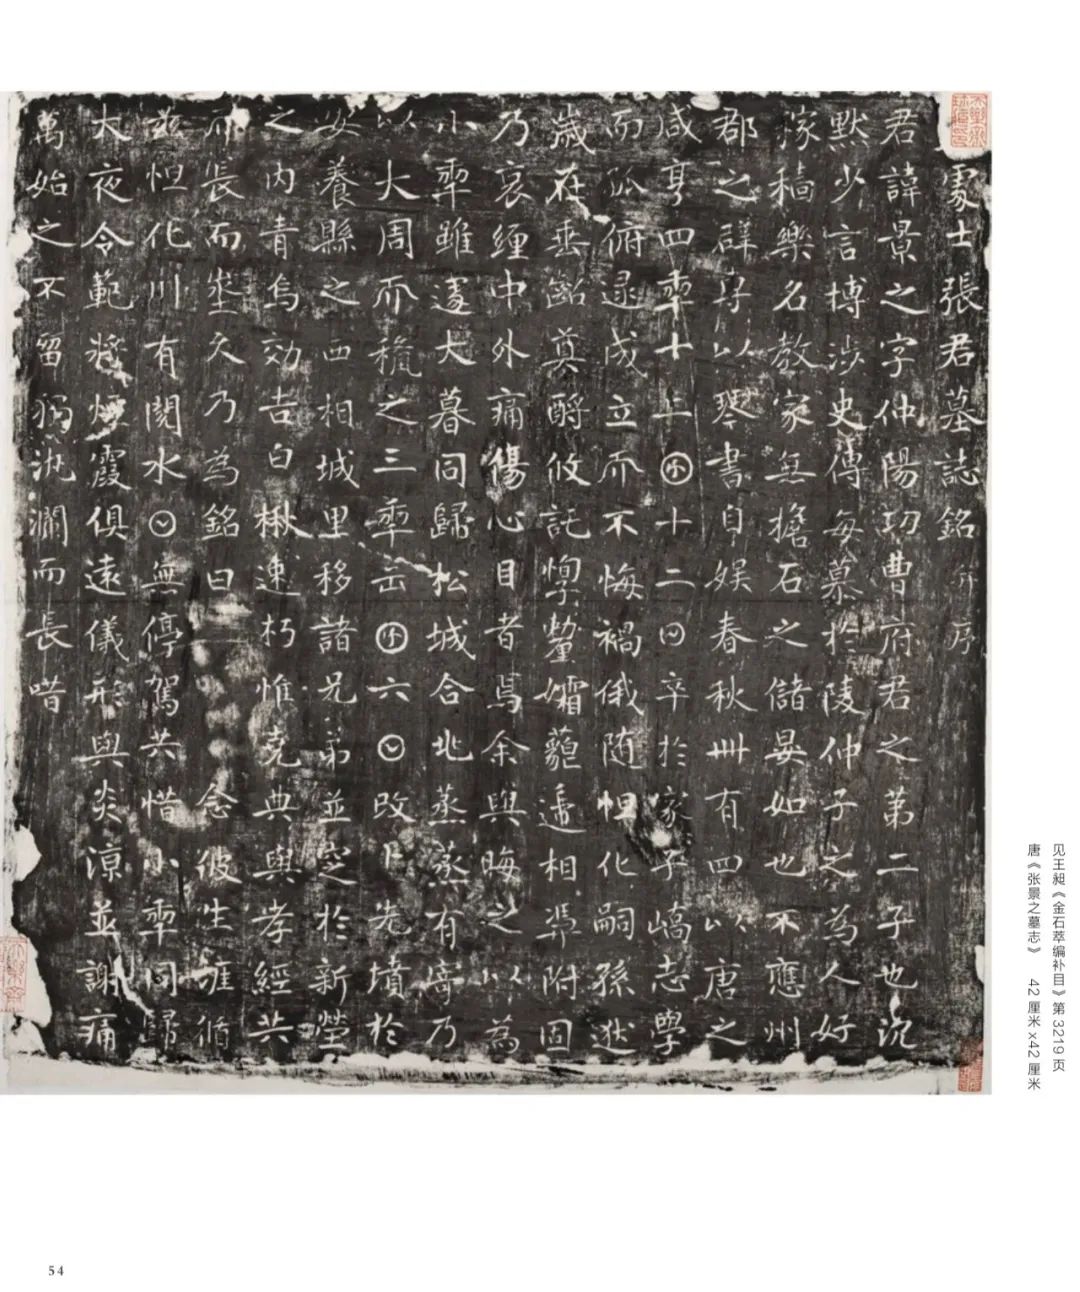 處士張君墓誌銘并序
君諱景之字仲陽功曹府君之第二子也沉
默少言博涉史傳每慕於陵仲子之為人好
稼穡樂名教家無擔石之儲晏如也不應州
郡之辟身以琴書自娛春秋卌有四以唐之
咸亨四𠡦十二囝十二日卒於家子嶠志學
而孤俯逮成立而不悔禍俄随怛化嗣孫𤞤
歲在垂齠奠酹攸託惸嫠孀藐遞相馮附固
乃哀纏中外痛傷心目者焉余與晦之以為
小𠡦雖遽大暮同歸松城合北蒸蒸有寄乃
以大周而穐之三𠡦𡊏囝六〇改卜先墳於
安養縣之西相城里移諸兄弟並窆於新塋
之內青烏効吉白楸速朽惟堯典與孝經共
而長而 乃為銘曰 念彼生涯循
茲怛化川有閱水〇無停駕共惜小𠡦同歸
大夜令範將煙霞俱遠儀形與炎涼並謝痛
萬始之不留獨汍瀾而長喈
见王昶《金石萃编补目》第 3219 页
唐《张景之墓志》 42 厘米 x42 厘米
54